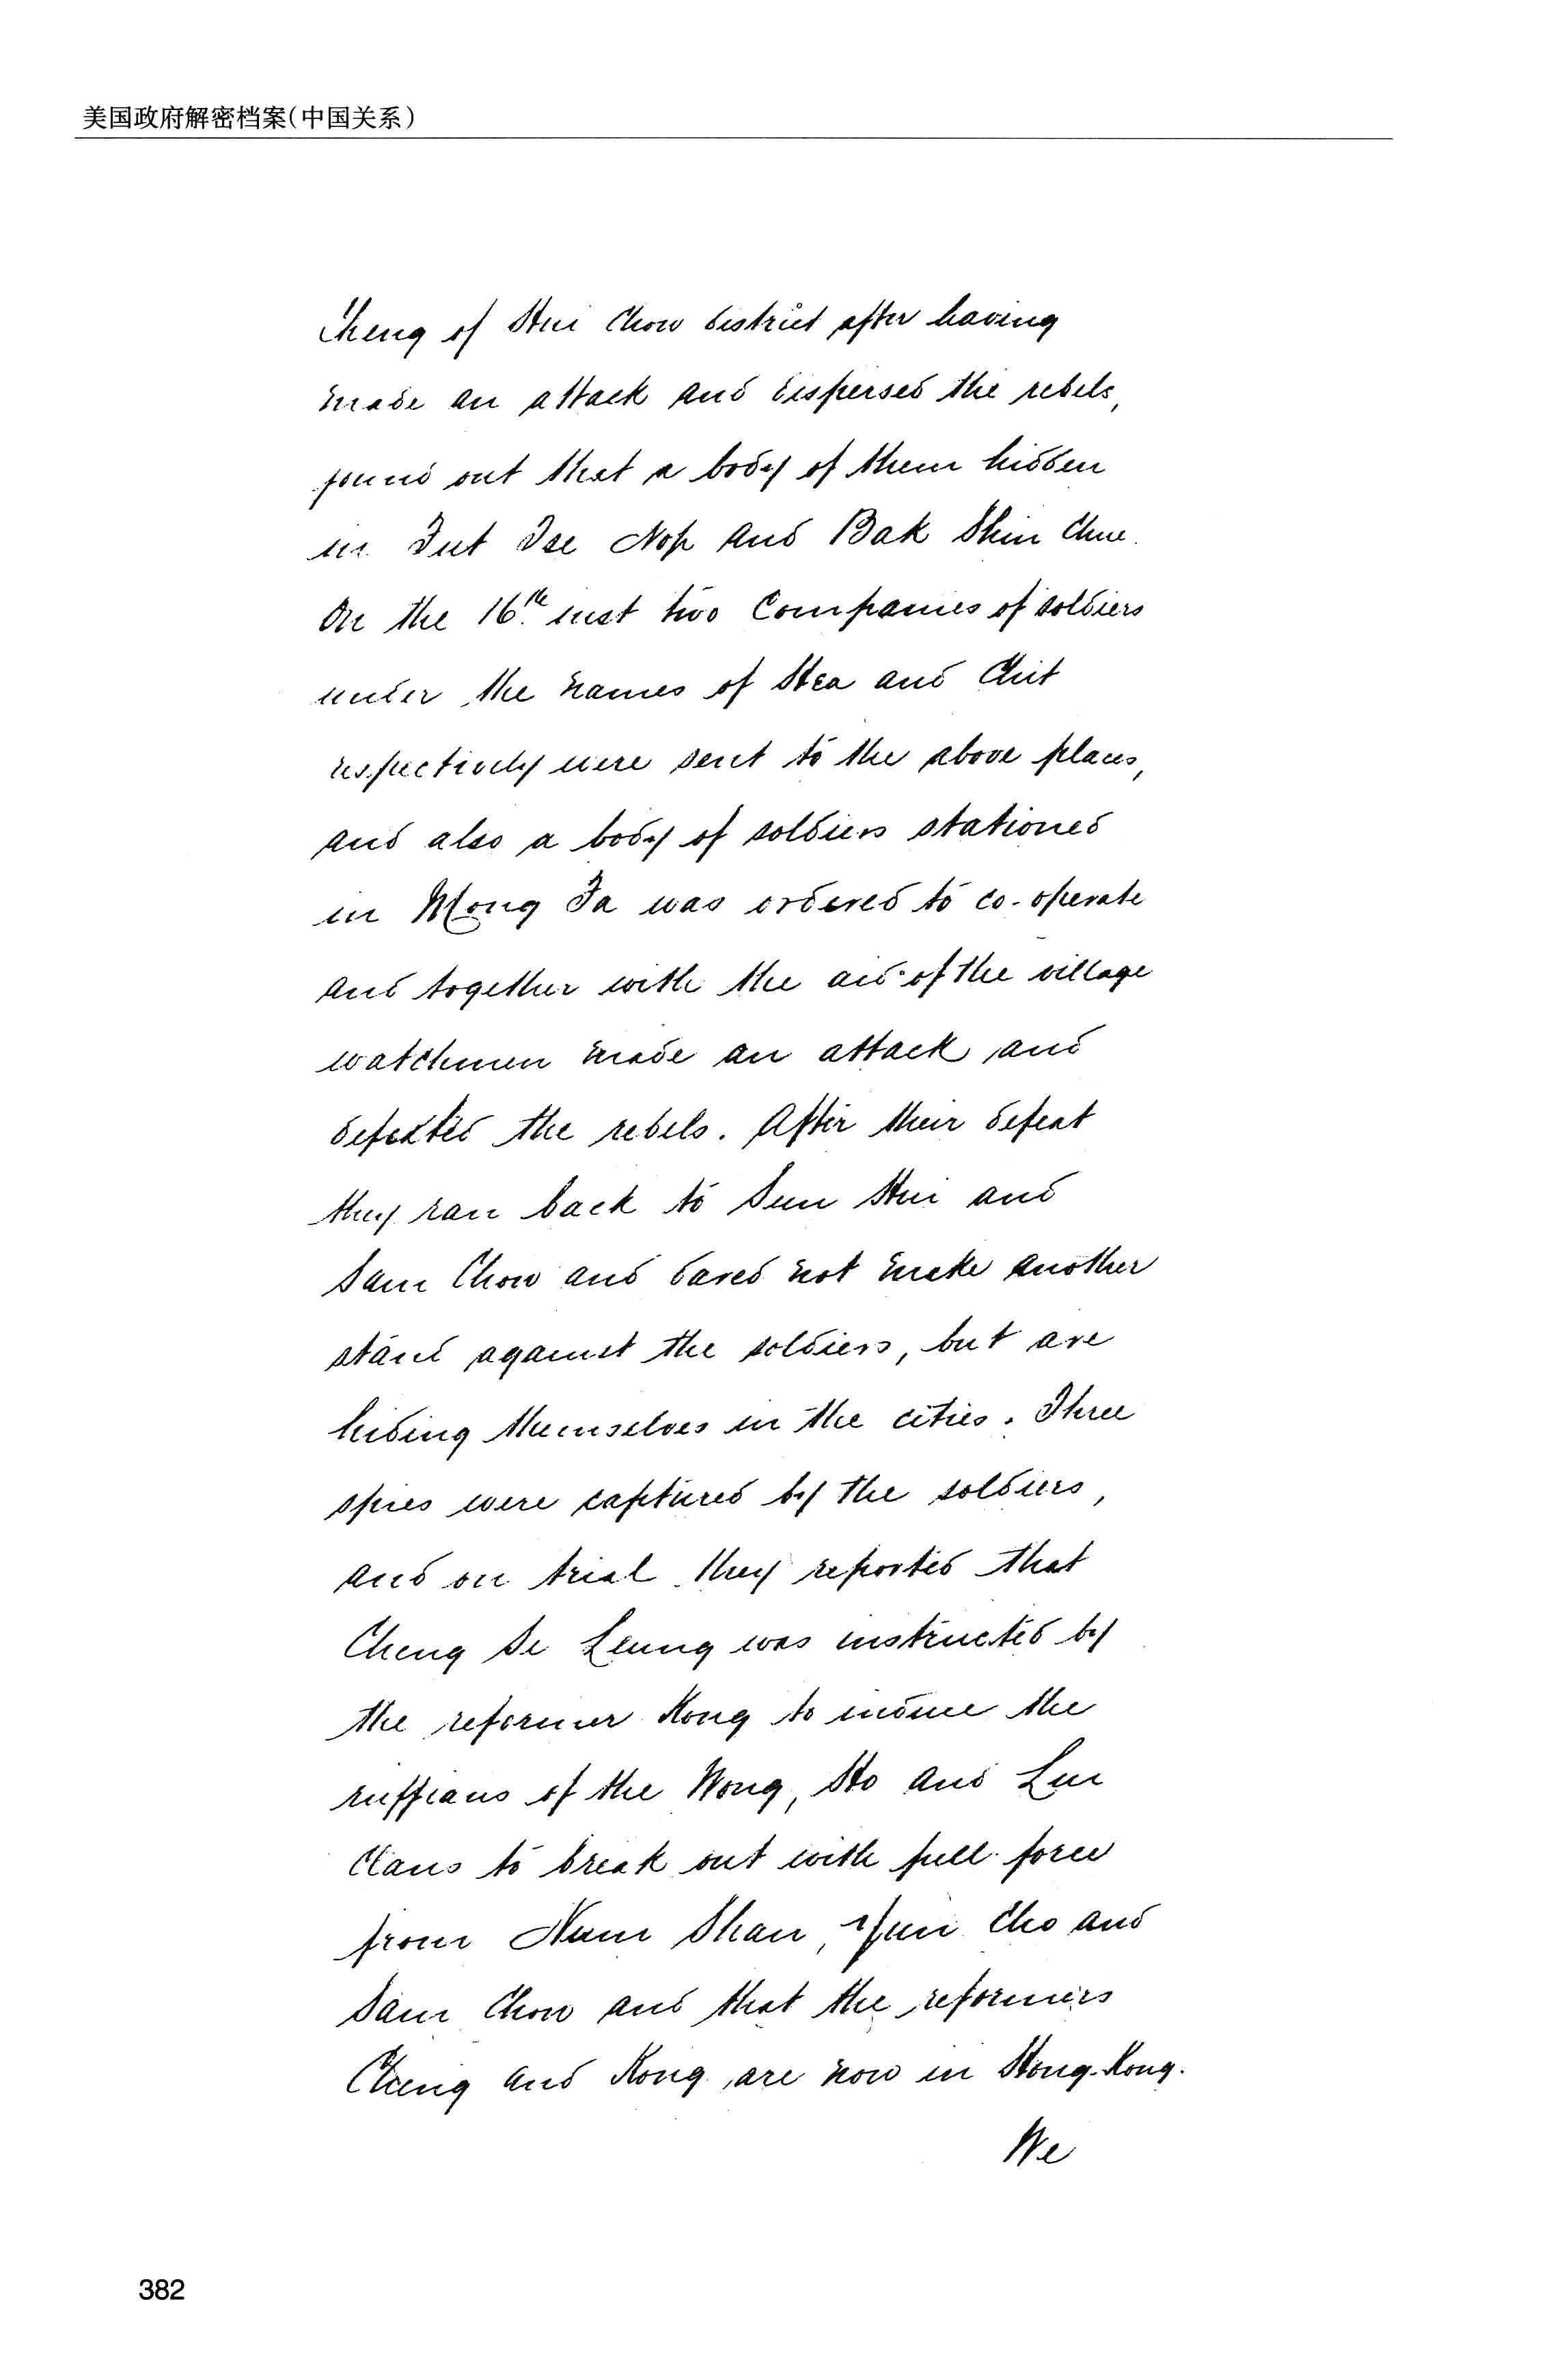 美国政府解密档案(中国关系)
Cheng of Hui Chow district after having
made an attack and dispersed the rebels,
found out that a body of them hidden
in Fut Tse Nop and Bak Shin Chue.
On the 16th inst two Companies of soldiers
under the names of Hea and Chit
respectively were sent to the above places,
and also a body of soldiers stationed
in Mong Fa was ordered to co-operate
and together with the aid of the village
watchmen made an attack and
defeated the rebels. After their defeat
they ran back to Sun Hui and
Sam Chow and dared not make another
stand against the soldiers, but are
hiding themselves in the cities. Three
spies were captured by the soldiers,
and on trial they reported that
Cheng Se Leung was instructed by
the reformer Kong to induce the
ruffians of the Wong, Ho and Lui
Clans to break out with full force
from Num Shan, Yun Cho and
Sam Chow and that the reformers
Cheng and Kong are now in Hong-Kong.
We
382